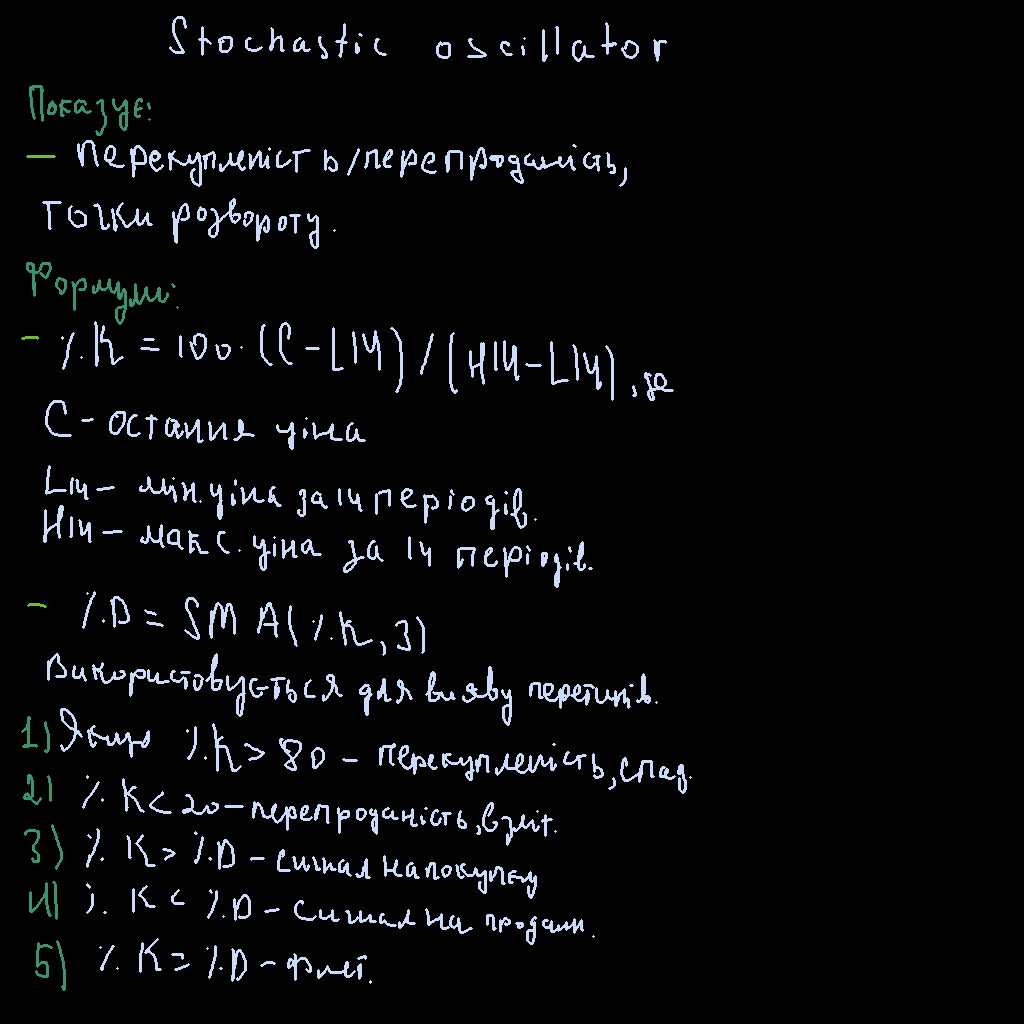 Stochastic oscillator
Показує:
— перекупленість/перепроданість,
точки розвороту.
Формули:
- %K = 100·(C-L14)/(H14-L14), де
C - остання ціна
L14 - мін. ціна за 14 періодів.
H14 - макс. ціна за 14 періодів.
- %D = SMA(%K,3)
Використовується для вияву перетинів.
1) Якщо %K > 80 - перекупленість, спад.
2) %K < 20 - перепроданість, взліт.
3) %K > %D - сигнал на покупку
4) %K < %D - сигнал на продаж.
5) %K = %D - флет.